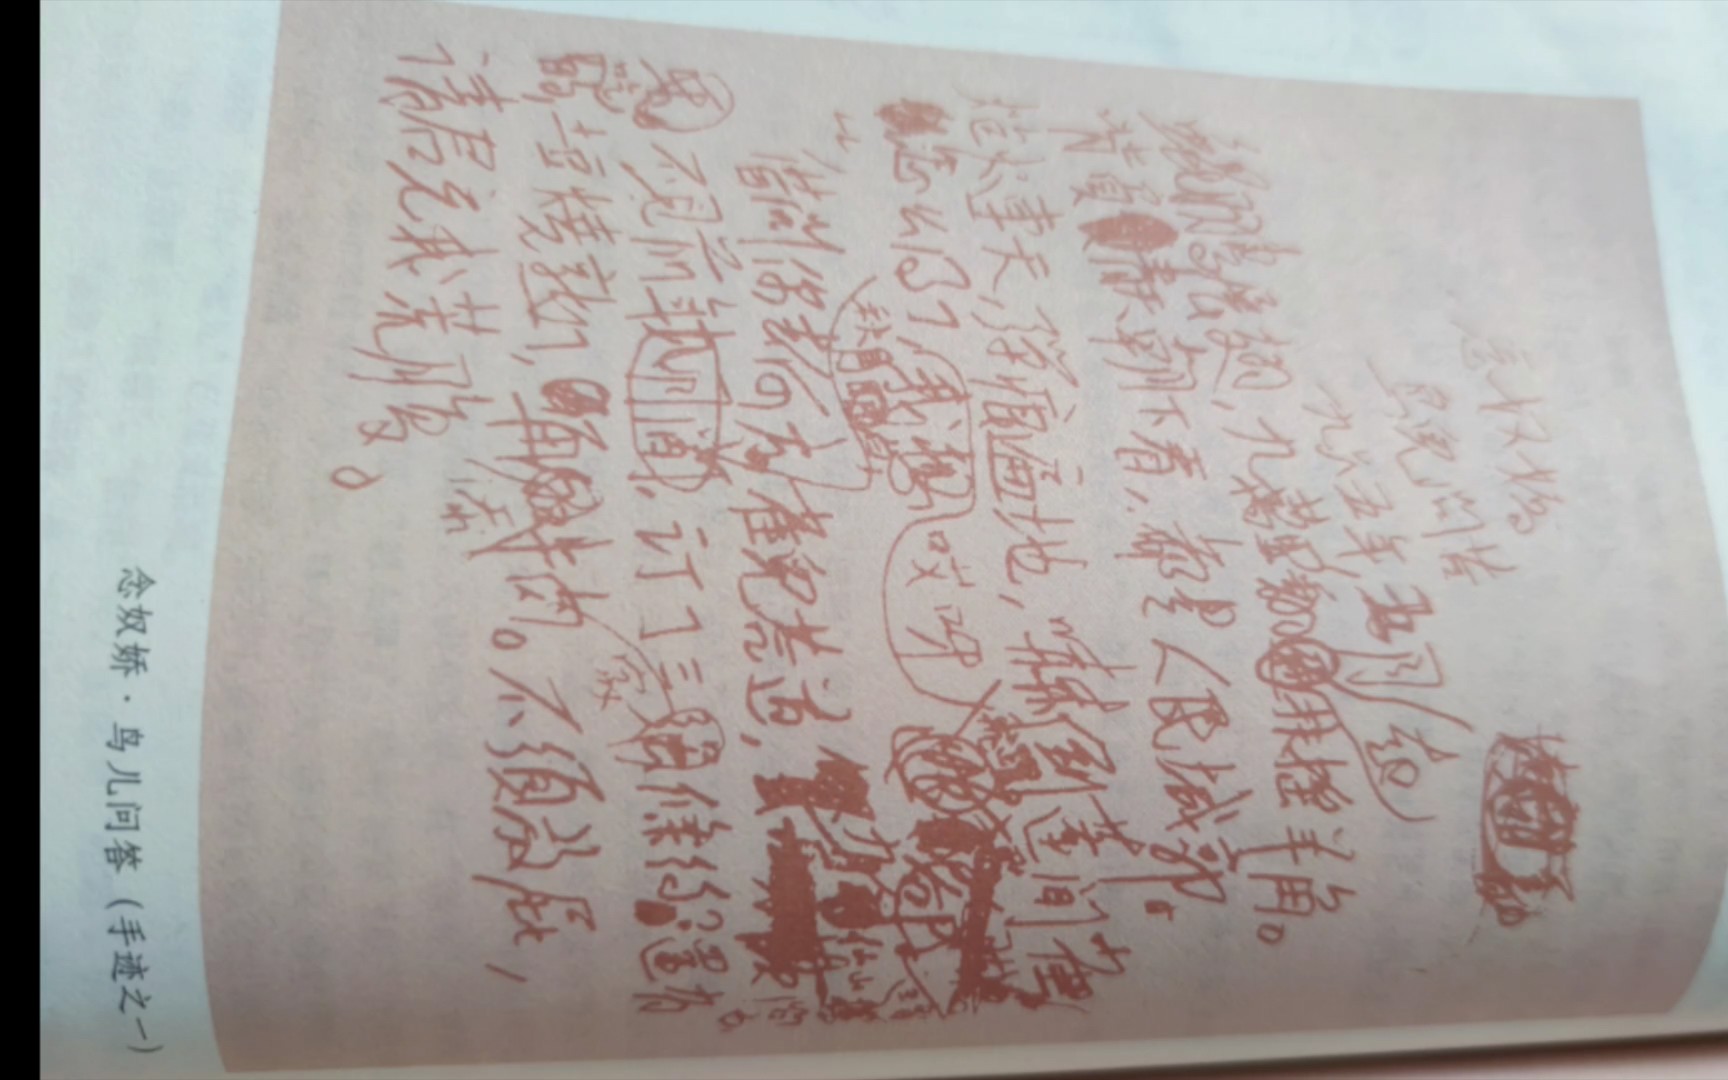 念奴娇
鸟儿问答
一九六五年五月
鲲鹏展翅,九万里,翻动扶摇羊角。
背负青天朝下看,都是人民城郭。
炮火连天,弹痕遍地,吓倒蓬间雀。
怎么得了,哎呀
借问你去何方,雀儿答道,有仙山琼阁
不见前年秋月白,订了三家条约。还有
土豆烧熟了,再添牛肉。不须放屁,
请君充我荒腹。
念奴娇·鸟儿问答(手迹之一)